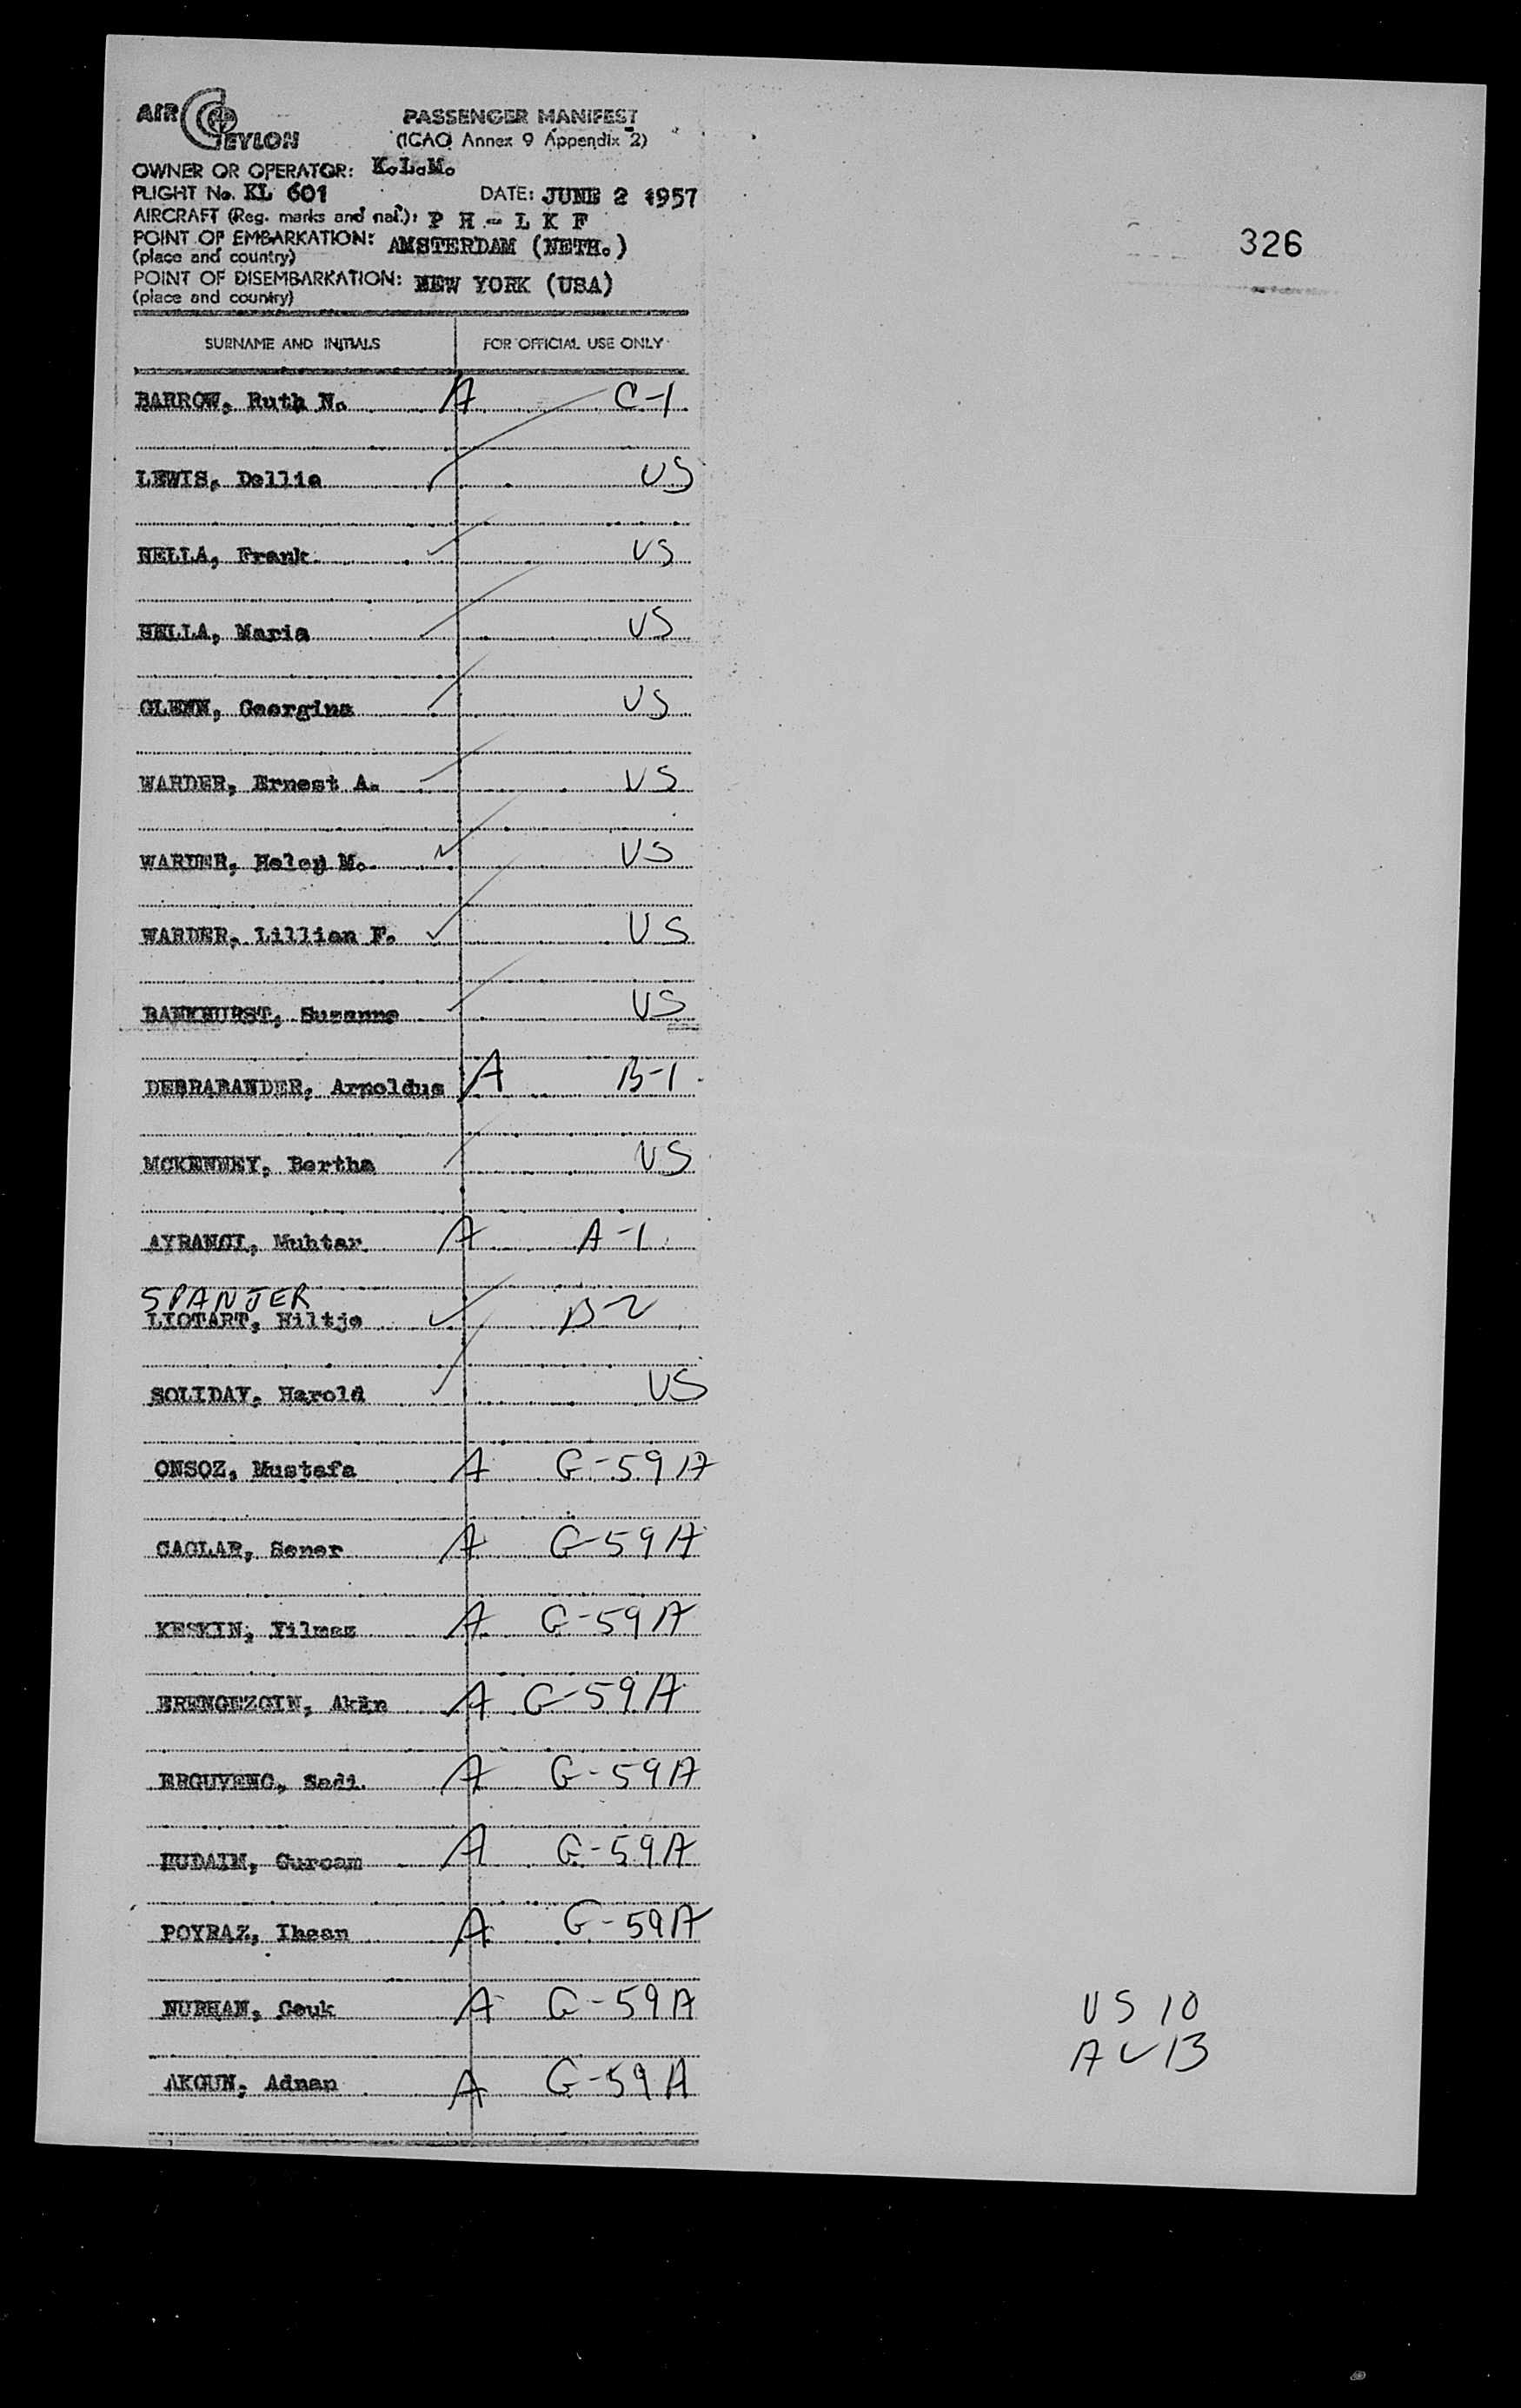 AIR CEYLON
PASSENGER MANIFEST
(ICAO Annex 9 Appendix 2)
OWNER OR OPERATOR: K.L.M.
FLIGHT No. KL 601 DATE: JUNE 2 1957
AIRCRAFT (Reg. marks and nat.): P H - L K F
POINT OF EMBARKATION: AMSTERDAM (NETH.)
(place and country)
POINT OF DISEMBARKATION: NEW YORK (USA)
(place and country)
326
SURNAME AND INITIALS FOR OFFICIAL USE ONLY
BARROW, Ruth N. A C-1
LEWIS, Dellie US
HELLA, Frank US
HELLA, Maria US
GLENN, Georgina US
WARDER, Ernest A. US
WARDER, Helen M. US
WARDER, Lillian F. US
BANKHURST, Suzanne US
DEBRABANDER, Arnoldus A B-1
MCKENNEY, Bertha US
AYRANCI, Muhtar A A-1
SPANJER
LIOTART, Hiltje B-2
SOLIDAY, Harold US
ONSOZ, Mustafa A G-59A
CAGLAR, Sener A G-59A
KESKIN, Yilmaz A G-59A
ERENGEZGIN, Akin A G-59A
ERGUVENC, Sadi A G-59A
HUDAIM, Gurcam A G-59A
POYRAZ, Ihsan A G-59A
NURHAN, Ceuk A G-59A
AKGUN, Adnan A G-59A
US 10
A 13